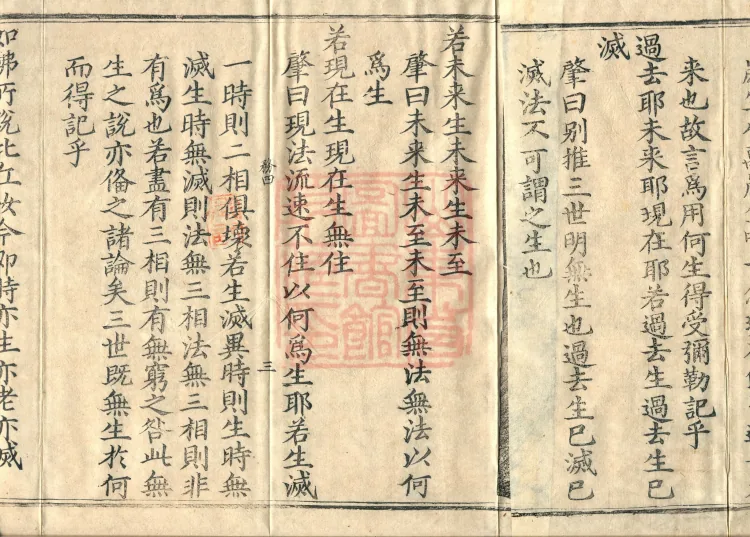 来也故言爲用何生得受彌勒記乎
過去耶未来耶現在耶若過去生過去生已
滅
肇曰别推三世明無生也過去生已滅已
滅法不可謂之生也
若未来生未来生未至
肇曰未来生未至未至則無法無法以何
爲生
若現在生現在生無住
肇曰現法流速不住以何爲生耶若生滅
務四
三
一時則二相俱壊若生滅異時則生時無
滅生時無滅則法無三相法無三相則非
有爲也若盡有三相則有無窮之咎此無
生之說亦俻之諸論矣三世既無生於何
而得記乎
如佛所說比丘汝今即時亦生亦老亦滅